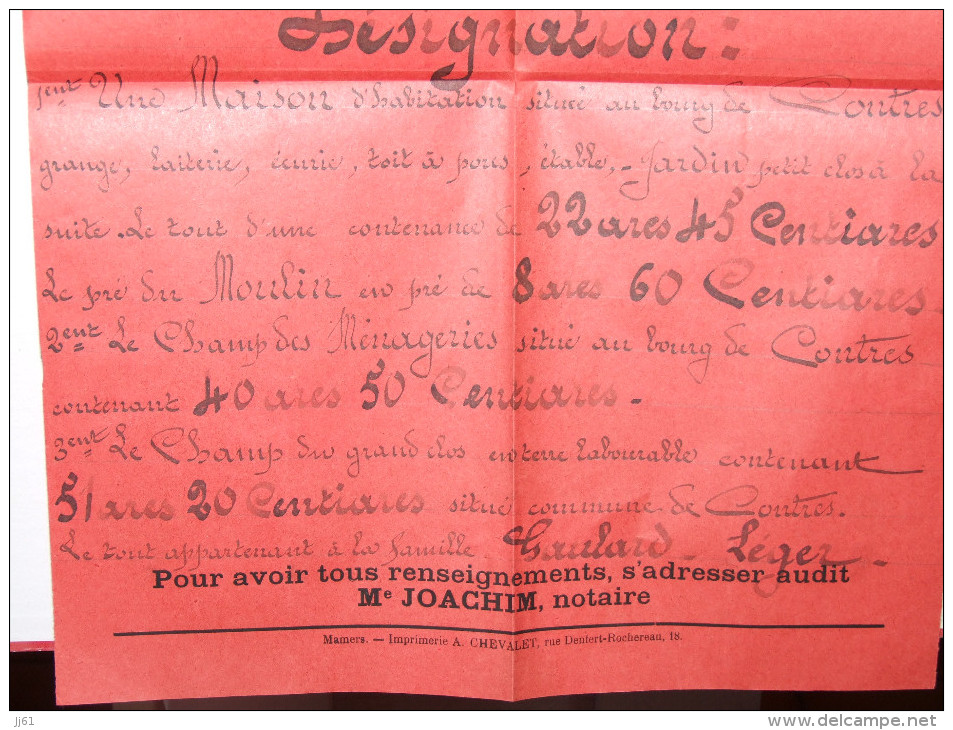 Désignation :
1ent Une Maison d'habitation située au bourg de Contres
grange, laiterie, écurie, toit à porcs, étable, - Jardin petit clos à la
suite. Le tout d'une contenance de 22 ares 45 Centiares
Le pré du Moulin en pré de 8 ares 60 Centiares
2ent Le Champ des Ménageries situé au bourg de Contres
contenant 40 ares 50 Centiares -
3ent Le Champ du grand clos en terre labourable contenant
51 ares 20 Centiares situé commune de Contres.
Le tout appartenant à la famille Gaulard - Léger -
Pour avoir tous renseignements, s'adresser audit
Me JOACHIM, notaire
Mamers. — Imprimerie A. CHEVALET, rue Denfert-Rochereau, 18.
jj61
http://www.delcampe.net